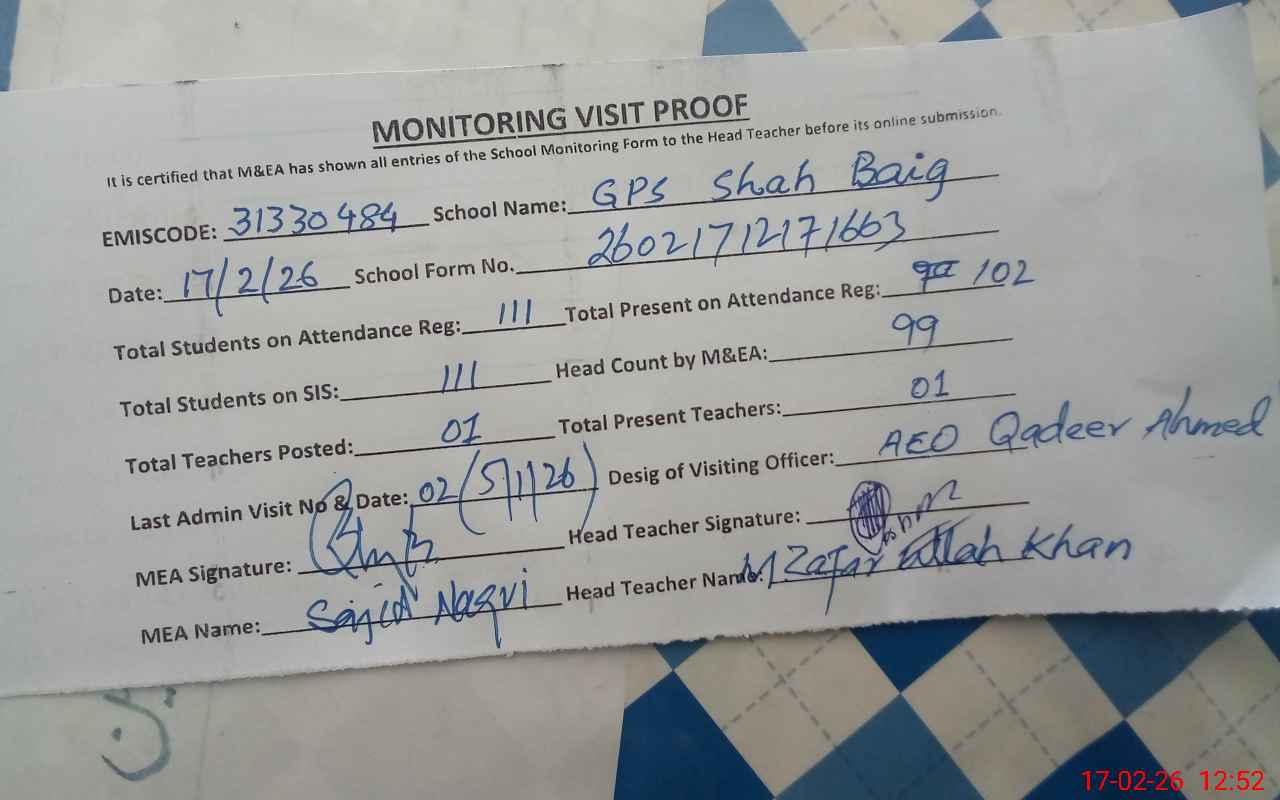 MONITORING VISIT PROOF
It is certified that M&EA has shown all entries of the School Monitoring Form to the Head Teacher before its online submission.
EMISCODE: 31330484 School Name: GPS Shah Baig
Date: 17/2/26 School Form No. 26021712171663
Total Students on Attendance Reg: 111 Total Present on Attendance Reg: 102
Total Students on SIS: 111 Head Count by M&EA: 99
Total Teachers Posted: 01 Total Present Teachers: 01
Last Admin Visit No & Date: 02 (5/1/26) Desig of Visiting Officer: AEO Qadeer Ahmed
MEA Signature: Head Teacher Signature:
MEA Name: Sajid Naqvi Head Teacher Name: M Zafar ullah Khan
17-02-26 12:52